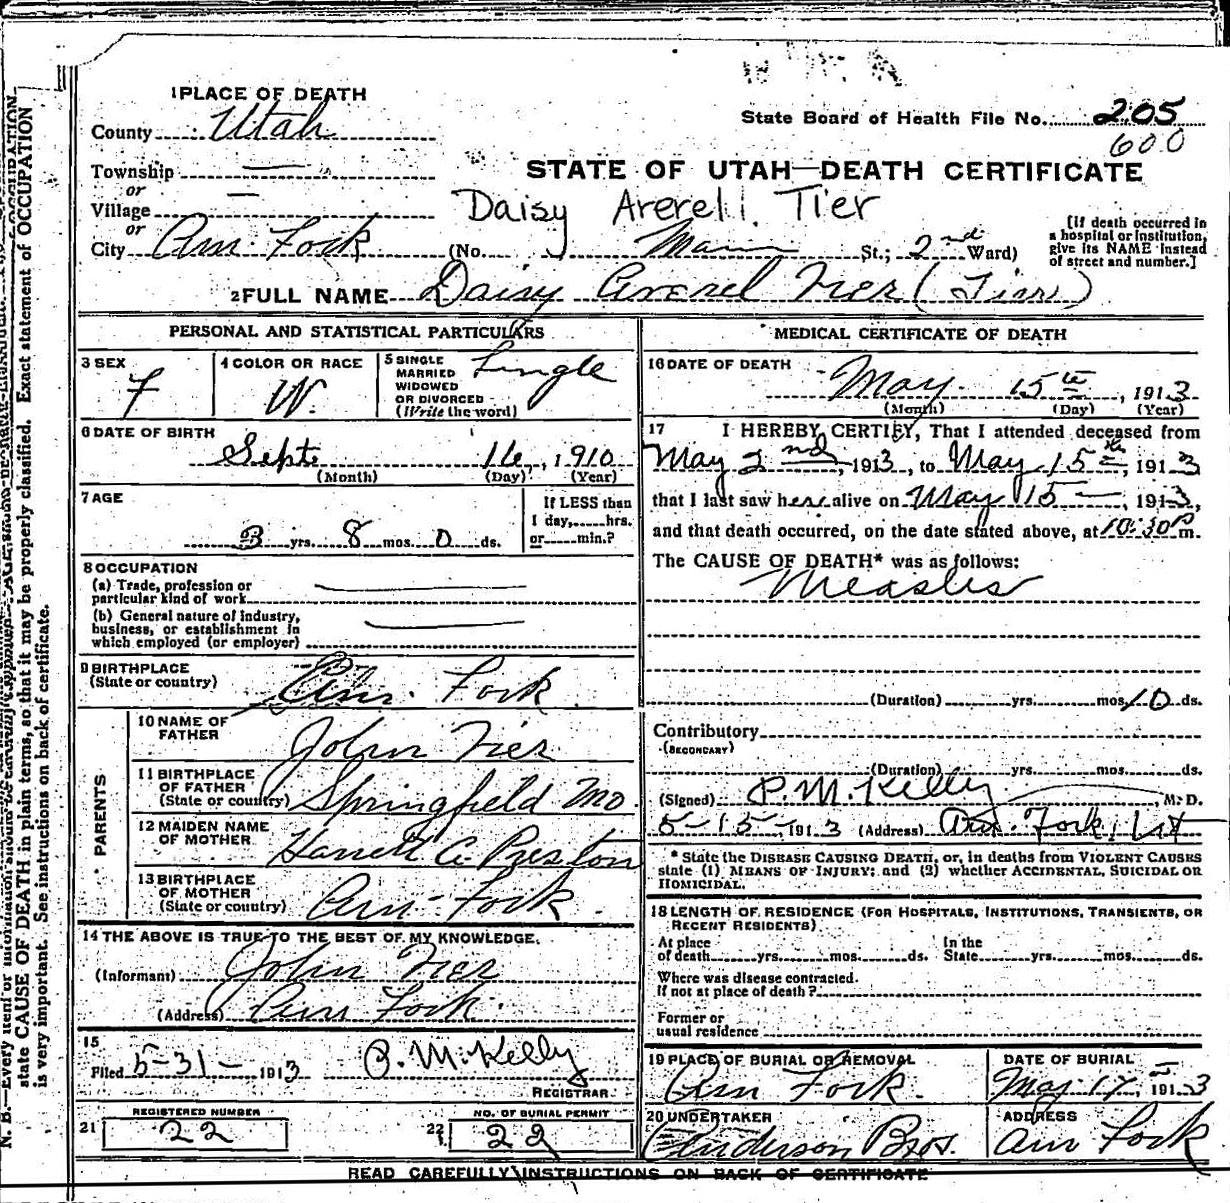 1 PLACE OF DEATH
County Utah
State Board of Health File No. 205
600
Township —
or
Village —
or
City Am. Fork
STATE OF UTAH—DEATH CERTIFICATE
Daisy Arerell Tier
(No. Main St.; 2nd Ward)
[If death occurred in
a hospital or institution,
give its NAME instead
of street and number.]
2 FULL NAME Daisy Averel Tier (Tier)
PERSONAL AND STATISTICAL PARTICULARS
3 SEX
F
4 COLOR OR RACE
W.
5 SINGLE
MARRIED
WIDOWED
OR DIVORCED
(Write the word)
Single
6 DATE OF BIRTH
Sept 16, 1910
(Month) (Day) (Year)
7 AGE
3 yrs. 8 mos. 0 ds.
If LESS than
1 day,......hrs.
or......min.?
8 OCCUPATION
(a) Trade, profession or
particular kind of work
(b) General nature of industry,
business, or establishment in
which employed (or employer)
9 BIRTHPLACE
(State or country)
Am. Fork
PARENTS
10 NAME OF
FATHER
John Tier
11 BIRTHPLACE
OF FATHER
(State or country)
Springfield Mo.
12 MAIDEN NAME
OF MOTHER
Harrett A. Preston
13 BIRTHPLACE
OF MOTHER
(State or country)
Am. Fork
14 THE ABOVE IS TRUE TO THE BEST OF MY KNOWLEDGE.
(Informant) John Tier
(Address) Am Fork.
15
Filed 5-31- 1913 P. M. Kelly
REGISTRAR
REGISTERED NUMBER
21 22
NO. OF BURIAL PERMIT
22 22
MEDICAL CERTIFICATE OF DEATH
16 DATE OF DEATH
May 15th, 1913
(Month) (Day) (Year)
17 I HEREBY CERTIFY, That I attended deceased from
May 2nd, 1913, to May 15th, 1913
that I last saw her alive on May 15—, 1913,
and that death occurred, on the date stated above, at 10:30 P m.
The CAUSE OF DEATH* was as follows:
Measles
(Duration) yrs. mos. 10 ds.
Contributory
(SECONDARY)
(Duration) yrs. mos. ds.
(Signed) P. M. Kelly, M. D.
5-15-, 1913 (Address) Am. Fork, Ut
* State the DISEASE CAUSING DEATH, or, in deaths from VIOLENT CAUSES
state (1) MEANS OF INJURY; and (2) whether ACCIDENTAL, SUICIDAL OR
HOMICIDAL.
18 LENGTH OF RESIDENCE (FOR HOSPITALS, INSTITUTIONS, TRANSIENTS, OR
RECENT RESIDENTS)
At place
of death......yrs......mos......ds.
In the
State......yrs......mos......ds.
Where was disease contracted.
If not at place of death?
Former or
usual residence
19 PLACE OF BURIAL OR REMOVAL
Am Fork.
DATE OF BURIAL
May 17, 1913
20 UNDERTAKER
Anderson Bros.
ADDRESS
Am Fork
READ CAREFULLY INSTRUCTIONS ON BACK OF CERTIFICATE
state CAUSE OF DEATH in plain terms, so that it may be properly classified. Exact statement of OCCUPATION
is very important. See instructions on back of certificate.